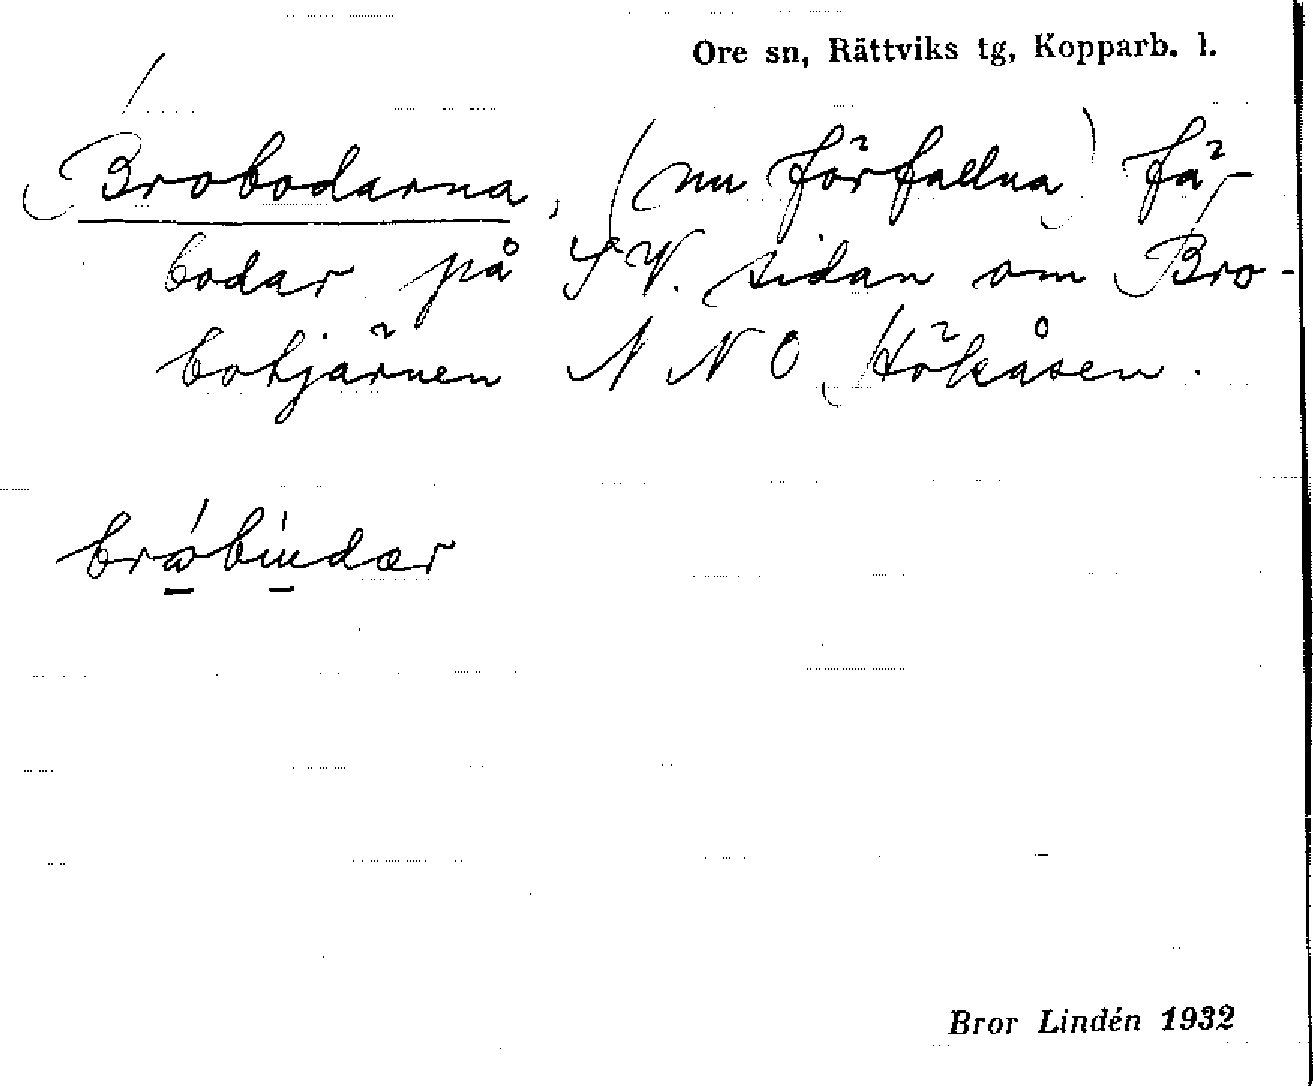 Ore sn, Rättviks tg, Kopparb. l.
Brobodarna, (nu förfallna) fä-
bodar på S V. sidan om Bro-
botjärnen N N O Hökåsen.
Bror Lindén 1932